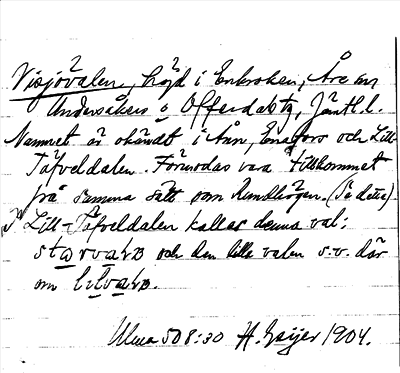 Visjövalen, höjd i Enkroken, Åre sn
Undersåkers o Offerdals tg, Jämtl. l.
Namnet är okändt i Ånn, Enafors och Lill-
Täfveldalen. Förmodas vara tillkommet
på samma sätt som Lundhögen. (Se detta).
I Lill-Täfveldalen kallas denna val:
stɷrvaln och den lilla valen s.v. där
om litvaln.
Ulma 508:30 H. Geijer 1904.